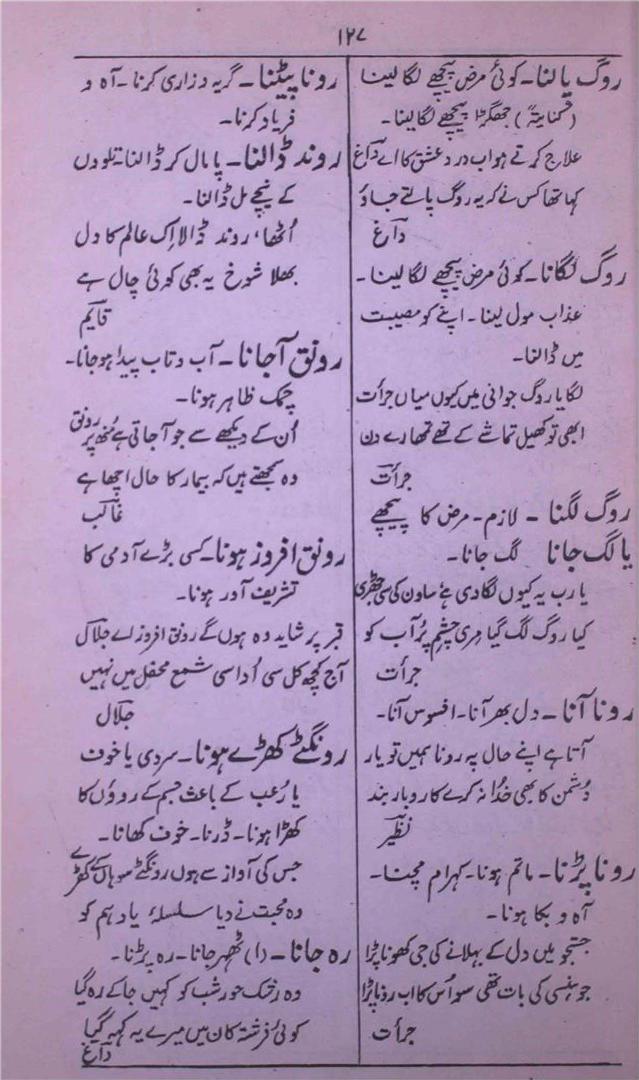 ۱۲۷
روگ پالنا۔ کوئی مرض پیچھے لگا لینا
(کنایتہً) جھگڑا پیچھے لگا لینا۔
علاج کرتے ہو اب درد عشق کا اے داغؔ
کہا تھا کس نے کہ یہ روگ پالتے جاؤ
داغؔ
روگ لگانا۔ کوئی مرض پیچھے لگا لینا۔
عذاب مول لینا۔ اپنے کو مصیبت
میں ڈالنا۔
لگایا روگ جوانی میں کیوں میاں جرأت
ابھی تو کھیل تماشے کے تھے تمھارے دن
جرأتؔ
روگ لگنا۔ لازم۔ مرض کا پیچھے
یا لگ جانا لگ جانا۔
یارب یہ کیوں لگا دی ہے ساون کی سی جھڑی
کیا روگ لگ گیا مری چشم پُر آب کو
جرأت
رونا آنا۔ دل بھر آنا۔ افسوس آنا۔
آتا ہے اپنے حال پہ رونا ہمیں تو یار
دُشمن کا بھی خُدا نہ کرے کاروبار بند
نظیرؔ
رونا پڑنا۔ ماتم ہونا۔ کہرام مچنا۔
آہ و بکا ہونا۔
جستجو میں دل کے بہلانے کی جی کھونا پڑا
جو ہنسی کی بات تھی سو اُس کا اب رونا پڑا
جرأت
رونا پیٹنا۔ گریہ و زاری کرنا۔ آہ و
فریاد کرنا۔
روند ڈالنا۔ پامال کر ڈالنا تلووں
کے نیچے مل ڈالنا۔
اُٹھا، روند ڈالا اِک عالم کا دل
بھلا شوخ یہ بھی کوئی چال ہے
قایمؔ
رونق آجانا۔ آب و تاب پیدا ہوجانا۔
چمک ظاہر ہونا۔
اُن کے دیکھے سے جو آجاتی ہے مُنھ پر رونق
وہ سمجھتے ہیں کہ بیمار کا حال اچھا ہے
غالبؔ
رونق افروز ہونا۔ کسی بڑے آدمی کا
تشریف آور ہونا۔
قبر پر شاید وہ ہوں گے رونق افروز اے جلالؔ
آج کچھ کل سی اُداسی شمع محفل میں نہیں
جلالؔ
رونگٹے کھڑے ہونا۔ سردی یا خوف
یا رُعب کے باعث جسم کے روؤں کا
کھڑا ہونا۔ ڈرنا۔ خوف کھانا۔
جس کی آواز سے ہوں رونگٹے سوہاں کے کھڑے
وہ محبت نے دیا سلسلۂ یاد ہم کو
رہ جانا۔ (۱) ٹھہر جانا۔ رہ پڑنا۔
وہ رشک حور شب کو کہیں جاکے رہ گیا
کوئی فرشتہ کان میں میرے یہ کہہ گیا
داغؔ